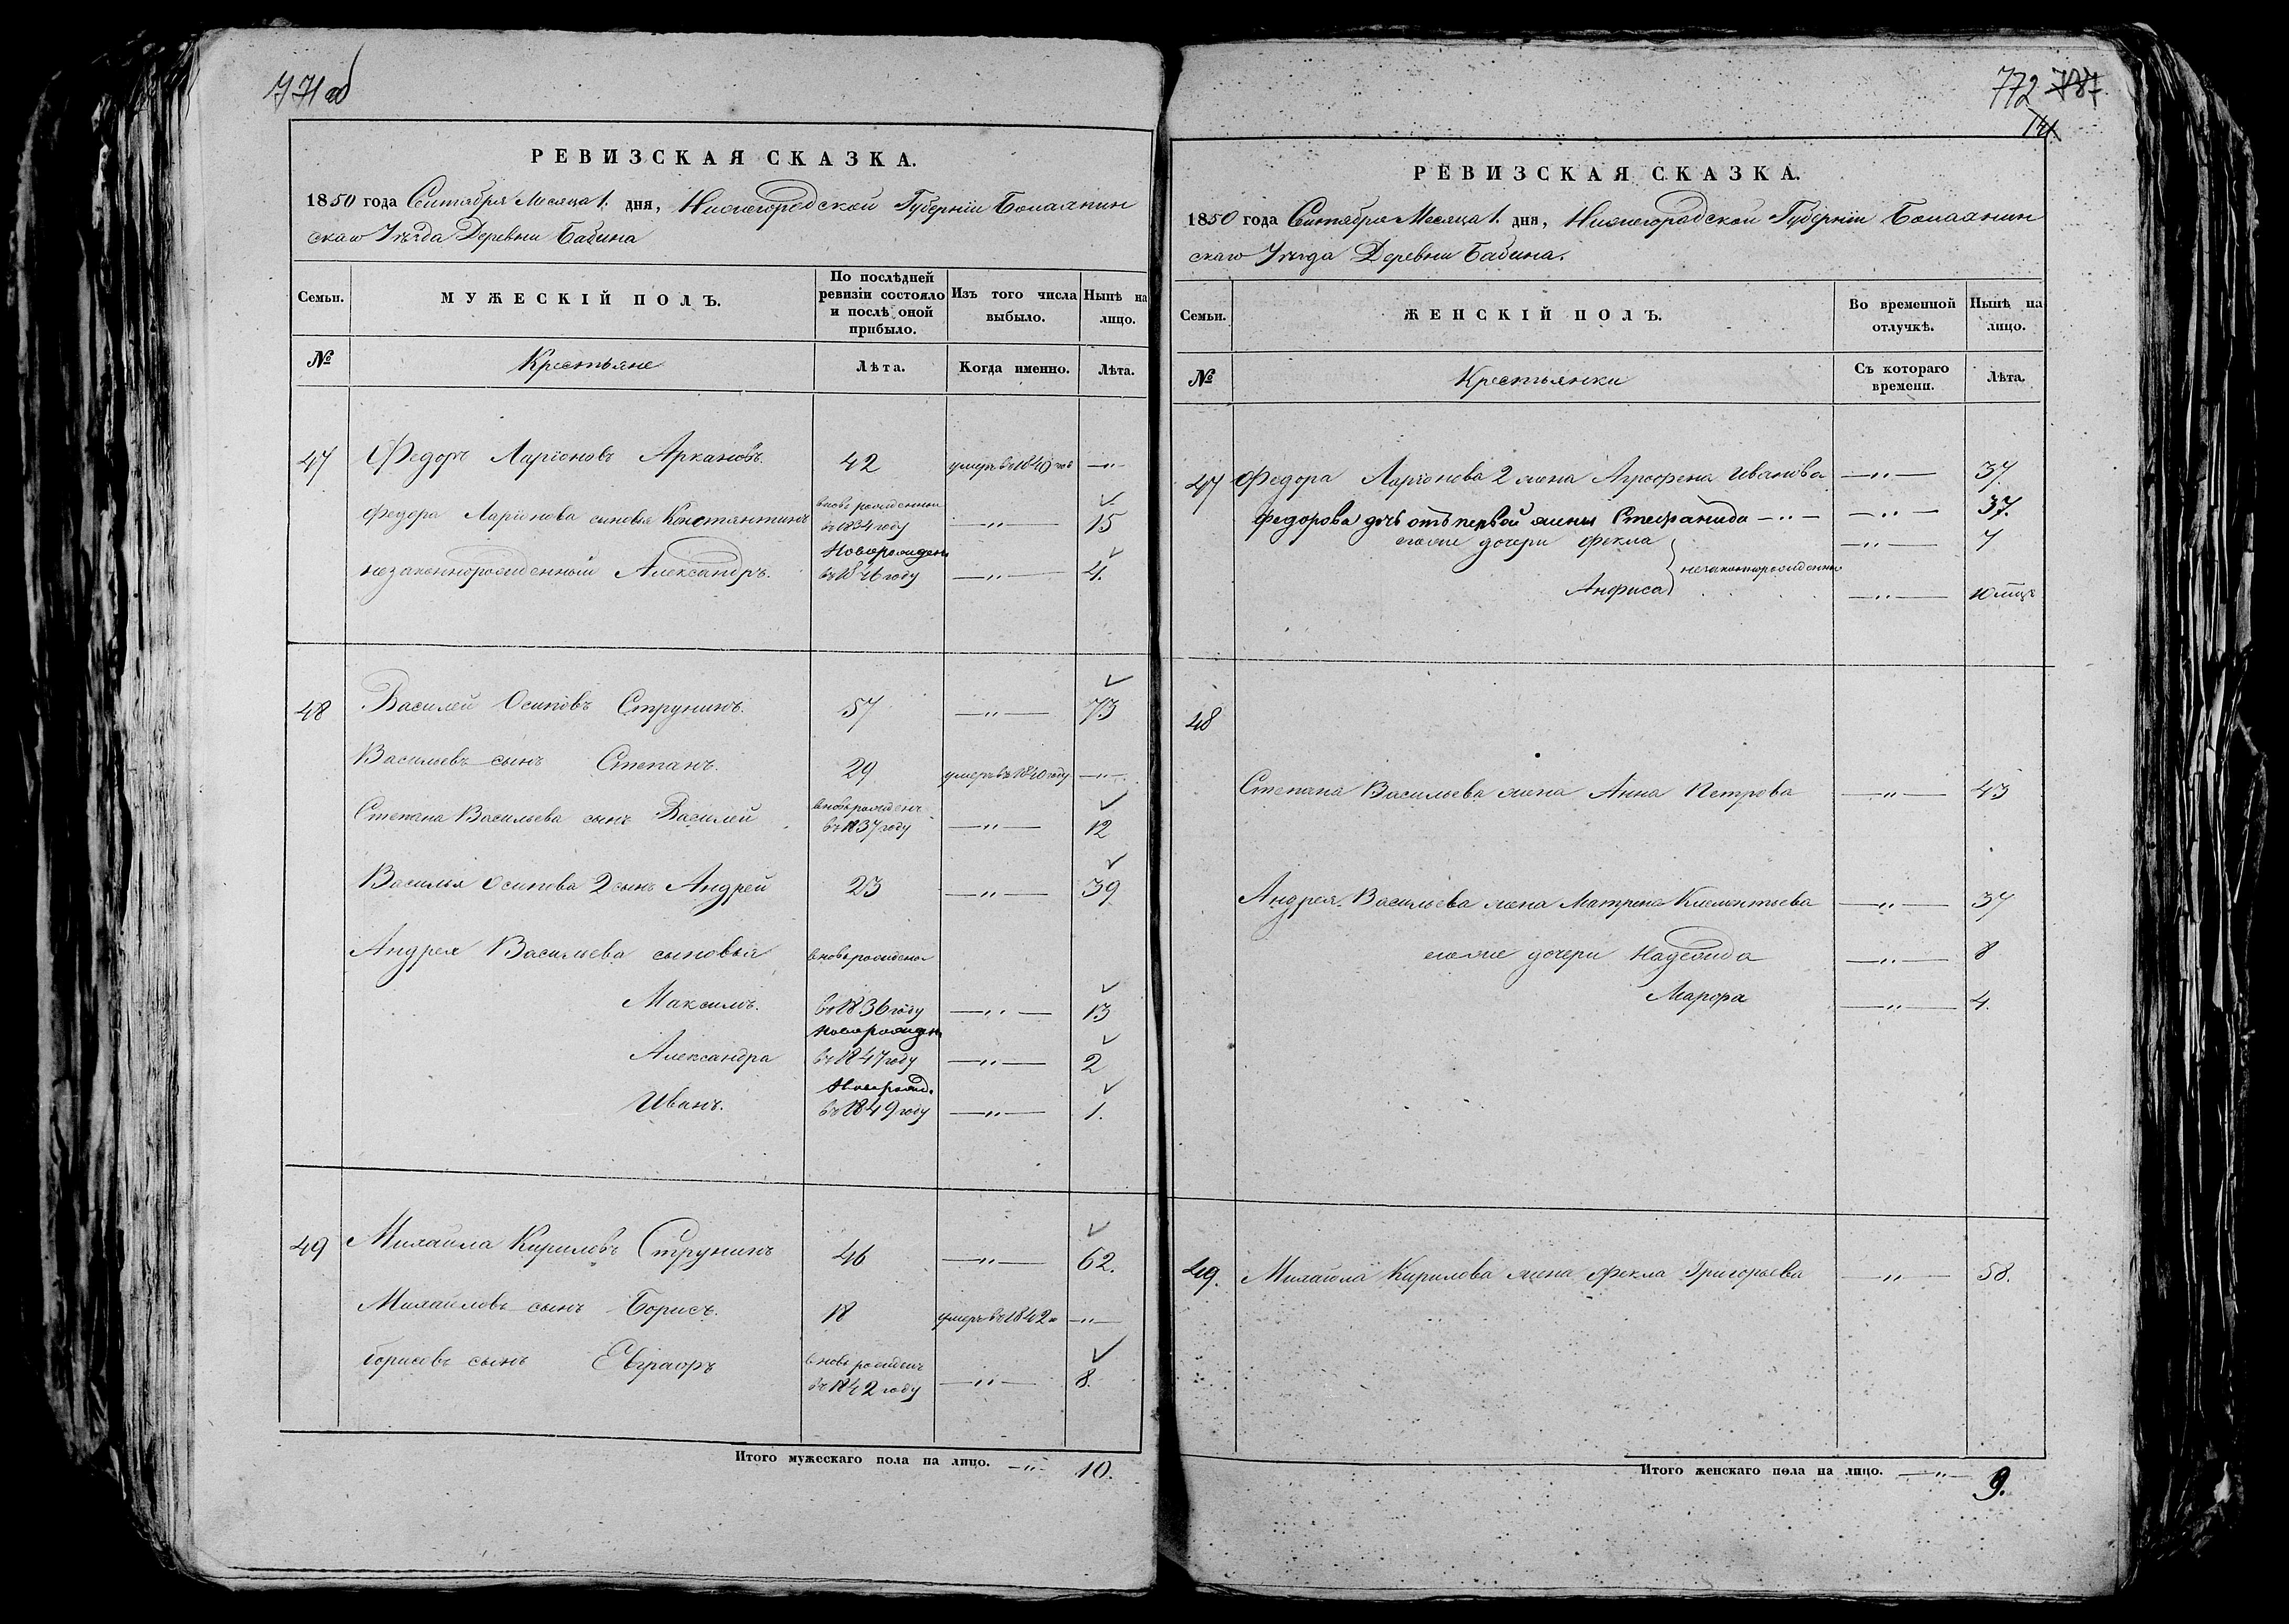 771 об
РЕВИЗСКАЯ СКАЗКА.
1850 года Сентября Месяца 1. дня, Нижегородской Губерніи Балахнин
скаго Уѣзда Деревни Бабина
Семьи.
МУЖЕСКІЙ ПОЛЪ.
По послѣдней
ревизіи состояло
и послѣ оной
прибыло.
Изъ того числа
выбыло.
Нынѣ на
лицо.
№
Крестьяне
Лѣта.
Когда именно.
Лѣта.
47 Федоръ Ларіоновъ 42 умеръ въ 1840 —〃—
Федора Ларіонова сыновья Константинъ вновь рожденный
въ 1834 году —〃— 15
незаконнорожденный Александръ. Новорожден
въ 1846 году —〃— 4.
48 Василей Осиповъ Струнинъ. 57 —〃— 73
Васильевъ сынъ Степанъ. 29 умеръ въ 1840 году —〃—
Степана Васильева сынъ Василей вновь рожденъ
въ 1837 году —〃— 12
Василья Осипова 2 сынъ Андрей 23 —〃— 39
Андрея Васильева сыновья вновь рождена
Максимъ. въ 1836 году —〃— 13
Новорожден
Александра въ 1847 году —〃— 2
Новорожд.
Иванъ. въ 1849 году —〃— 1.
49 Михайла Кириловъ Струнинъ 46 —〃— 62.
Михайловъ сынъ Борисъ. 18 умеръ въ 1842 —〃—
Борисовъ сынъ Евграфъ вновь рожденъ
въ 1842 году —〃— 8.
Итого мужескаго пола на лицо. —〃— 10.
772 787
РЕВИЗСКАЯ СКАЗКА.
1850 года Сентября Месяца 1. дня, Нижегородской Губерніи Балахнин
скаго Уѣзда Деревни Бабина.
Семьи.
ЖЕНСКІЙ ПОЛЪ.
Во временной
отлучкѣ.
Нынѣ на
лицо.
№
Крестьянки
Съ котораго
времени.
Лѣта.
47 Федора Ларіонова 2 жена Агрофена Иванова —〃— 37.
Федорова дчь отъ первой жены Стефанида —〃— —〃— 37.
ея же дочери Фекла —〃— 7
незаконнорожденны
Анфиса —〃— 10 мцъ
48
Степана Васильева жена Анна Петрова —〃— 43
Андрея Васильева жена Матрена Клементьева —〃— 37
ея же дочери Надежида —〃— 8
Марфа —〃— 4.
49. Михайла Кирилова жена Фекла Григорьева —〃— 58.
Итого женскаго пола на лицо. —〃— 9.